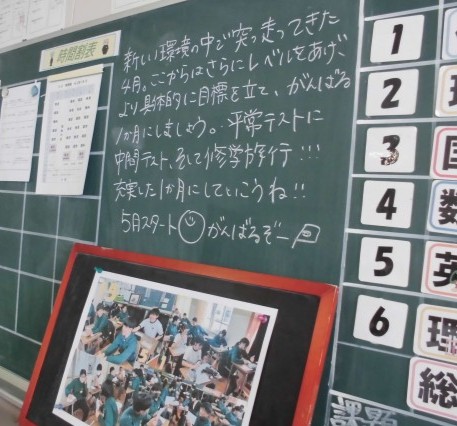 時間割表
新しい環境の中で突っ走ってきた
4月。ここからはさらにレベルをあげ、
より具体的に目標を立て、がんばる
1か月にしましょう。平常テストに
中間テスト、そして修学旅行!!!
充実した1か月にしていこうね!!
5月スタート がんばるぞー
1
2 理
3 国
4 数
5 英
6 理
総
課題